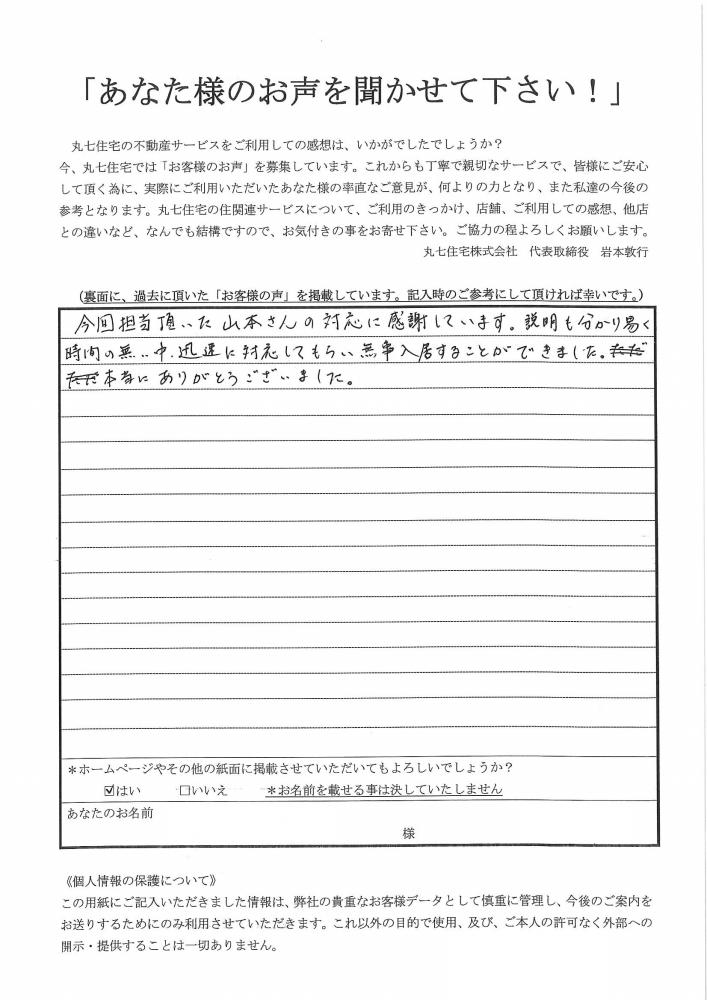 「あなた様のお声を聞かせて下さい！」
丸七住宅の不動産サービスをご利用しての感想は、いかがでしたでしょうか？
今、丸七住宅では「お客様のお声」を募集しています。これからも丁寧で親切なサービスで、皆様にご安心
して頂く為に、実際にご利用いただいたあなた様の率直なご意見が、何よりの力となり、また私達の今後の
参考となります。丸七住宅の住関連サービスについて、ご利用のきっかけ、店舗、ご利用しての感想、他店
との違いなど、なんでも結構ですので、お気付きの事をお寄せ下さい。ご協力の程よろしくお願いします。
丸七住宅株式会社　代表取締役　岩本敦行
（裏面に、過去に頂いた「お客様の声」を掲載しています。記入時のご参考にして頂ければ幸いです。）
今回担当頂いた山本さんの対応に感謝しています。説明も分かり易く
時間の無い中、迅速に対応してもらい無事入居することができました。ただ
ただ本当にありがとうございました。
＊ホームページやその他の紙面に掲載させていただいてもよろしいでしょうか？
☑はい　□いいえ　＊お名前を載せる事は決していたしません
あなたのお名前
様
《個人情報の保護について》
この用紙にご記入いただきました情報は、弊社の貴重なお客様データとして慎重に管理し、今後のご案内を
お送りするためにのみ利用させていただきます。これ以外の目的で使用、及び、ご本人の許可なく外部への
開示・提供することは一切ありません。